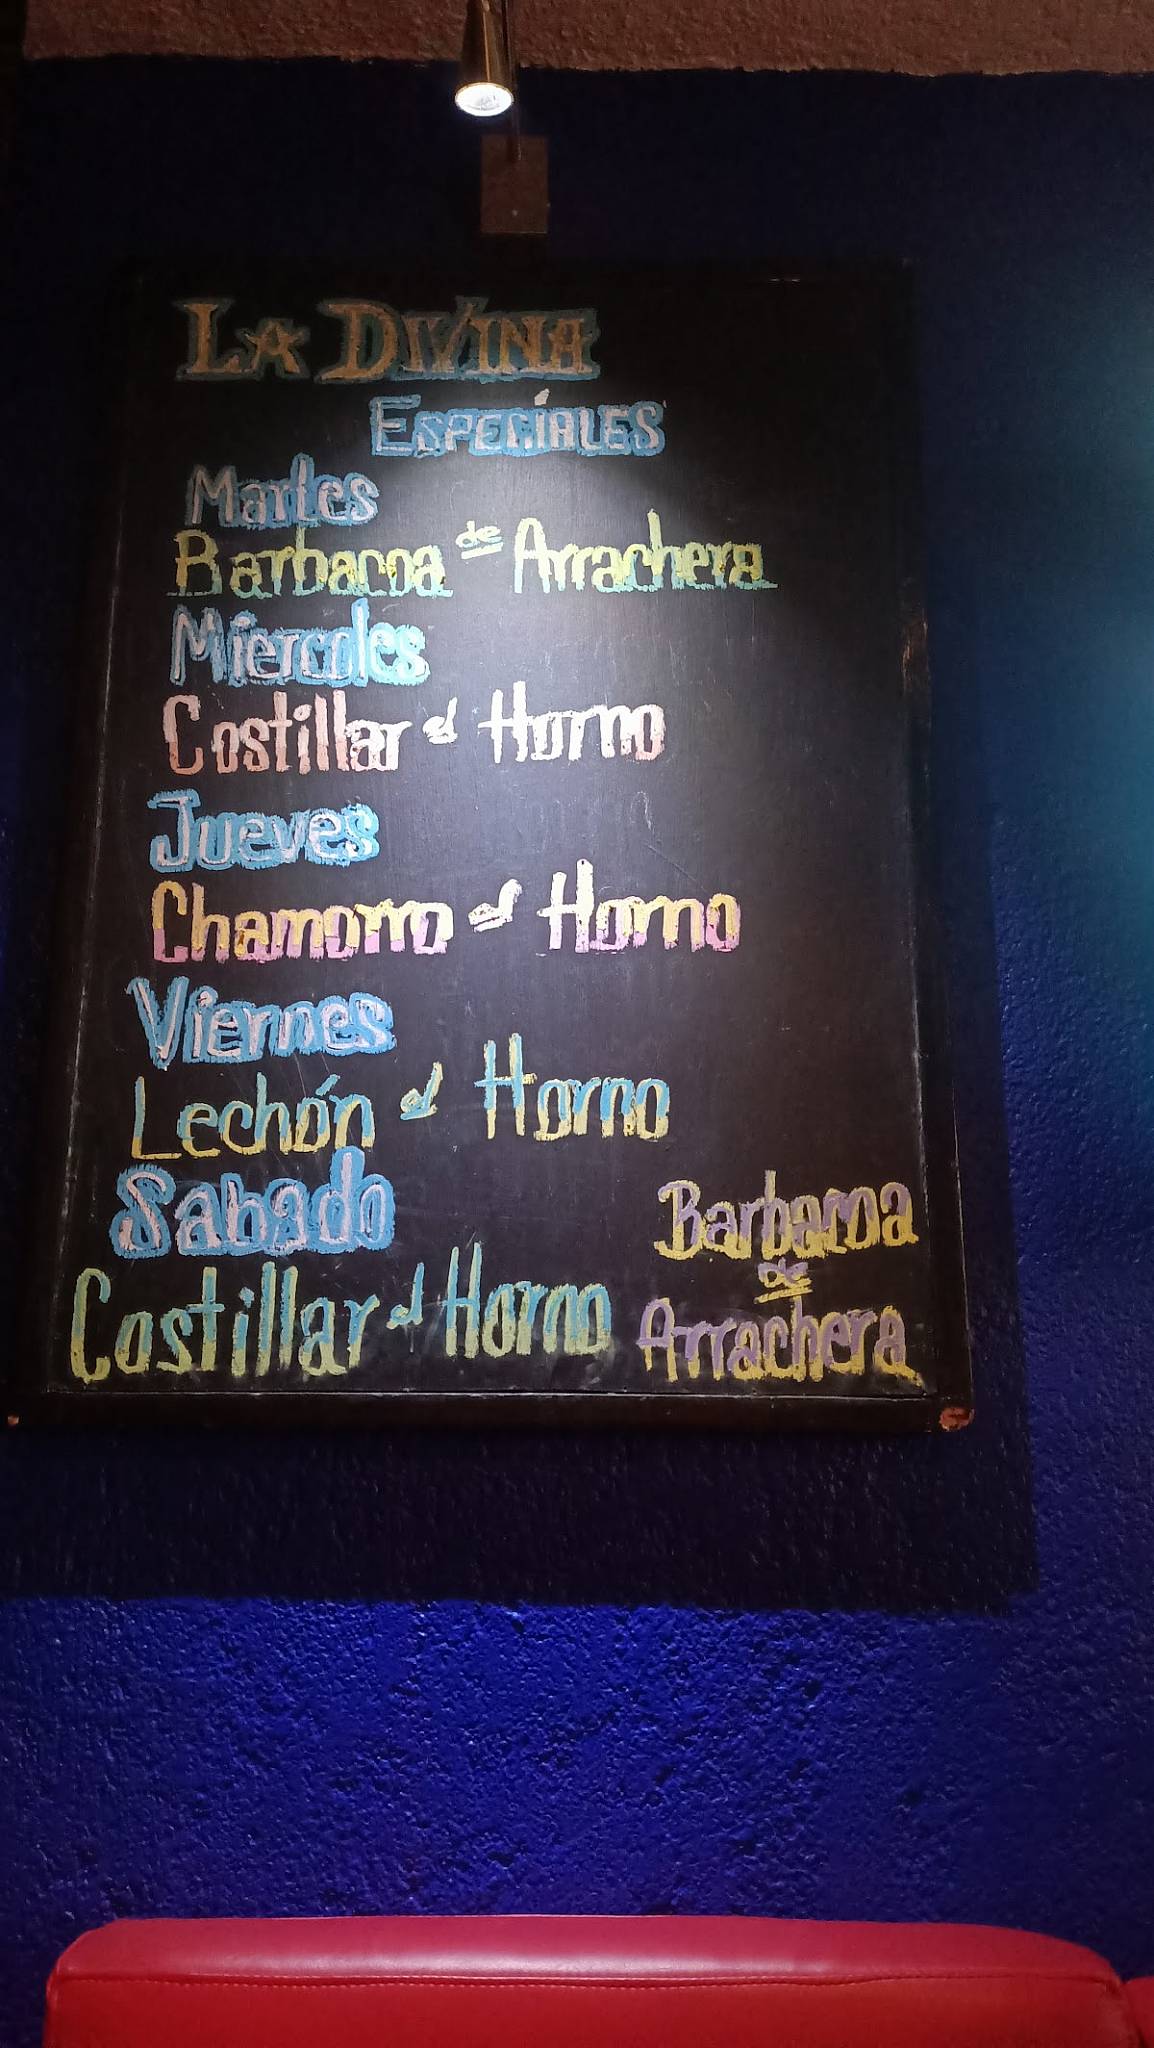 LA DIVINA
ESPECÍALES
Martes
Barbacoa de Arrachera
Míercoles
Costillar al Horno
Jueves
Chamorro al Horno
Viernes
Lechón al Horno
Sabado
Costillar al Horno
Barbacoa
de
Arrachera